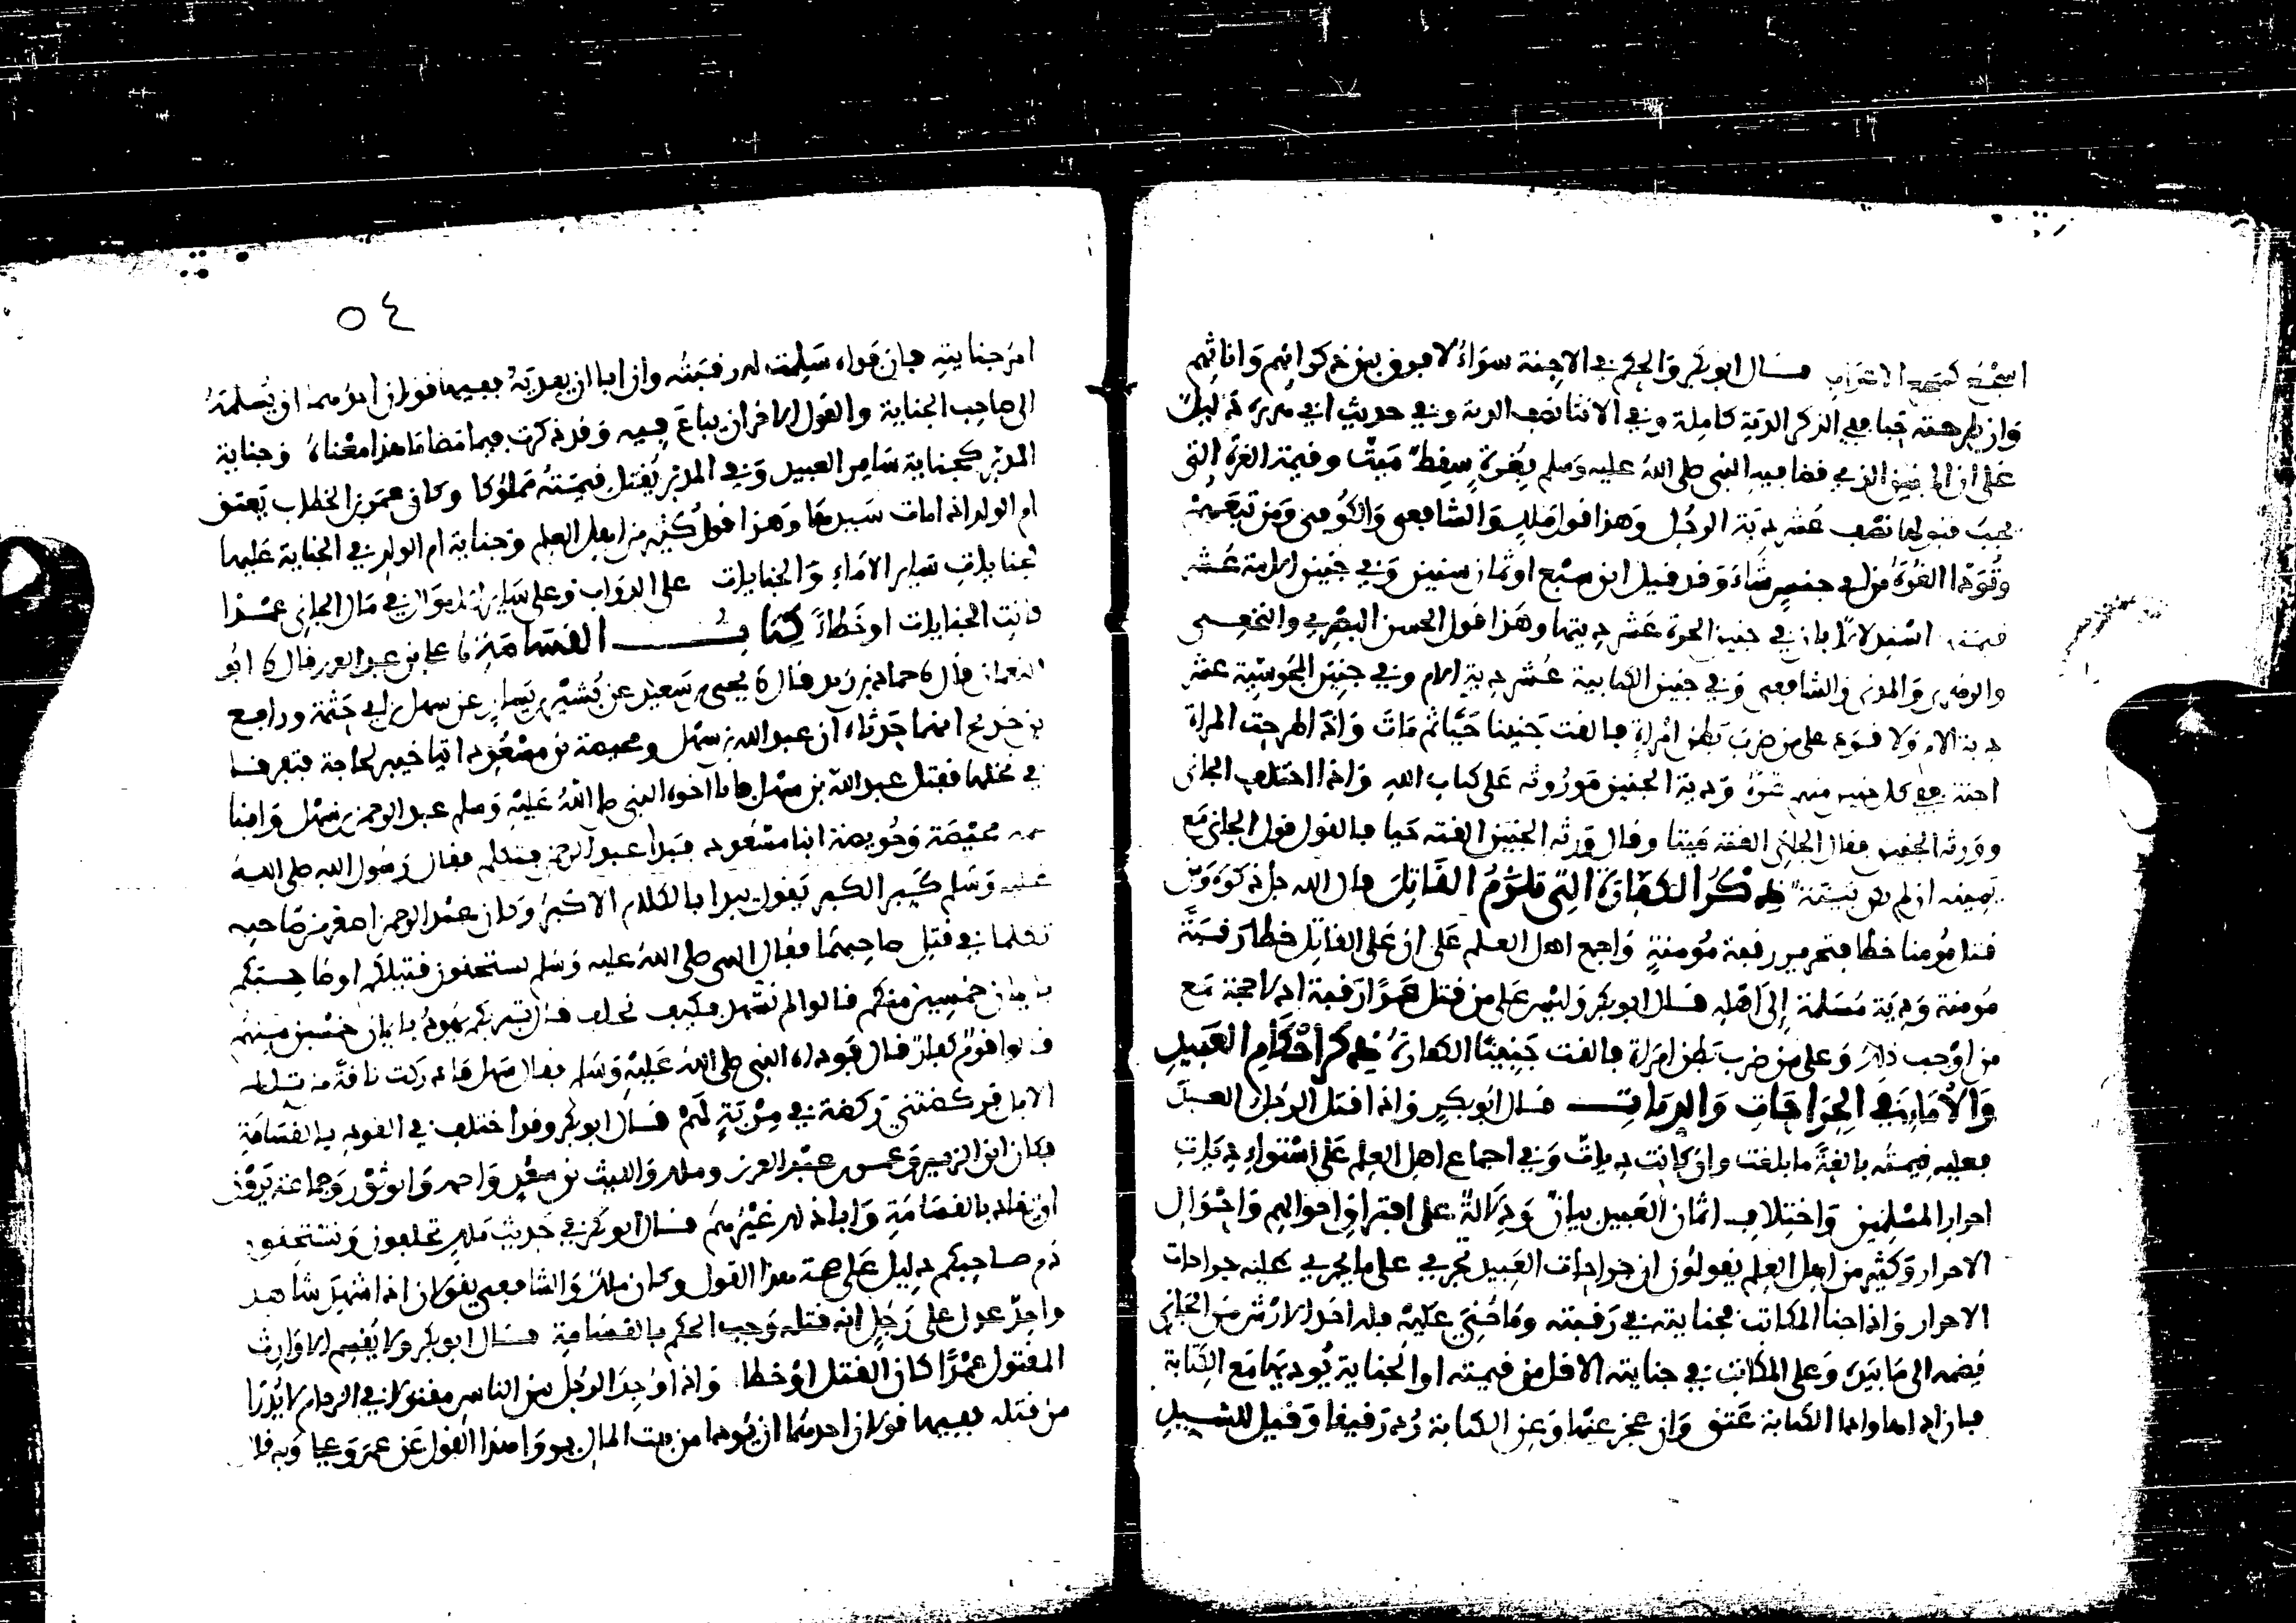 اسجع كسجع الاعراب قال ابو بكر والحكم في الاجنة سواء لا فرق بين ذكرانهم واناثهم
وان طرحته حيا ففي الذكر الدية كاملة وفي الانثا نصف الدية وفي حديث ابي هريرة دليل
على ان الجنين الذي قضا فيه النبي صلى الله عليه وسلم بغرة سقط ميتا وقيمة الغرة التي
يجب قبولها نصف عشر دية الرجل وهذا قول ملك والشافعي والكوفي ومن تبعهم
وتودا الغرة من اي جنس شاء وقد قيل ابن سبع او ثمان سنين وفي جنين الامة عشر
قيمة امه استدلالا بان في جنين الحرة عشر ديتها وهذا قول الحسن البصري والنخعي
والزهري والمدني والشافعي وفي جنين الكتابية عشر دية الام وفي جنين المجوسية عشر
دية الام ولا قود على من ضرب بطن امراة فالقت جنينا حيا ثم مات واذا طرحت المراة
اجنة ففي كل جنين منهم غرة ودية الجنين موروثه على كتاب الله واذا اختلف الجاني
وورثه الجنين فقال الجاني القته ميتا وقال ورثه الجنين القته حيا فالقول قول الجاني مع
يمينه ان لم تكن بينة ذكر الكفارة التي تلزم القاتل قال الله جل ذكره ومن
قتل مومنا خطا فتحرير رقبة مومنة واجمع اهل العلم على ان على القاتل خطا رقبة
مومنة ودية مسلمة الى اهله قال ابو بكر وليس على من قتل عمدا رقبة اذ لا حجة مع
من اوجب ذلك وعلى من ضرب بطن امراة فالقت جنينا الكفارة ذكر احكام العبيد
والاماء في الجراحات والديات قال ابو بكر واذا قتل الرجل العبد
فعليه قيمته بالغة ما بلغت وان كانت ديات وفي اجماع اهل العلم على استواء ديات
احرار المسلمين واختلاف اثمان العبيد بيان ودلالة على افتراق احوالهم واحوال
الاحرار وكثير من اهل العلم يقولون ان جراحات العبيد تجري على ما يجري عليه جراحات
الاحرار واذا جنا المكاتب فجنايته في رقبته وما جني عليه فله اخذ الارش من الجاني
يضمه الى ما بيده وعلى المكاتب في جنايته الاقل من قيمته او الجناية يوديها مع الكتابة
فان اداها وادا الكتابة عتق وان عجز عنها وعن الكتابة رد رقيقا وقيل للسيد
٥٤
امر جنايته فان فداه سلمت له رقبته وان ابا ان يفديه ففيها قولان احدهما ان يسلمه
الى صاحب الجناية والقول الاخر ان يباع فيه وقد ذكرت فيما مضا ما هذا معناه وجناية
المدبر كجناية ساير العبيد وفي المدبر يقتل قيمته مملوكا وكان عمر بن الخطاب يعتق
ام الولد اذا مات سيدها وهذا قول كثير من اهل العلم وجناية ام الولد في الجناية عليها
كجنايات ساير الاماء والجنايات على الدواب وعلى ساير الاموال في مال الجاني عمدا
كانت الجنايات او خطاء كتاب القسامة نا علي بن عبد العزيز قال نا ابو
النعمان قال نا حماد بن زيد قال نا يحيى بن سعيد عن بشير بن يسار عن سهل بن ابي حثمة ورافع
بن خديج انهما حدثاه ان عبد الله بن سهل ومحيصة بن مسعود اتيا خيبر لحاجة فتفرقا
في نخلها فقتل عبد الله بن سهل فاتا اخوه النبي صلى الله عليه وسلم عبد الرحمن بن سهل وابنا
عمه محيصة وحويصة ابنا مسعود فبدا عبد الرحمن فتكلم فقال رسول الله صلى الله
عليه وسلم كبر الكبر يقول يبدا بالكلام الاكبر وكان عبد الرحمن اصغر من صاحبيه
تكلما في قتيل صاحبهما فقال النبي صلى الله عليه وسلم تستحقون قتيلكم او صاحبكم
بايمان خمسين منكم قالوا لم نشهد فكيف نحلف قال تبريكم يهود بايمان خمسين منهم
قالوا قوم كفار قال فوداه النبي صلى الله عليه وسلم فقال سهل فادركت ناقة من تلك
الابل فركضتني ركضة في مربد لهم قال ابو بكر وقد اختلف في القود بالقسامة
فكان ابن الزبير وعمر بن عبد العزيز وملك والليث بن سعد واحمد وابو ثور وجماعة يرون
ان يقاد بالقسامة وابا ذلك غيرهم قال ابو بكر في حديث ملك تحلفون وتستحقون
دم صاحبكم دليل على صحة هذا القول وكان ملك والشافعي يقولان اذا شهد شاهد
واحد عدل على رجل انه قتله وجب الحكم بالقسامة قال ابو بكر ولا يقسم الا وارث
المقتول عمدا كان القتل او خطا واذا وجد الرجل بين الناس مقتولا في الزحام لا يدرا
من قتله ففيها قولان احدهما ان يودا من بيت المال هو وا هذا القول عن عمر وعلي وبه قال